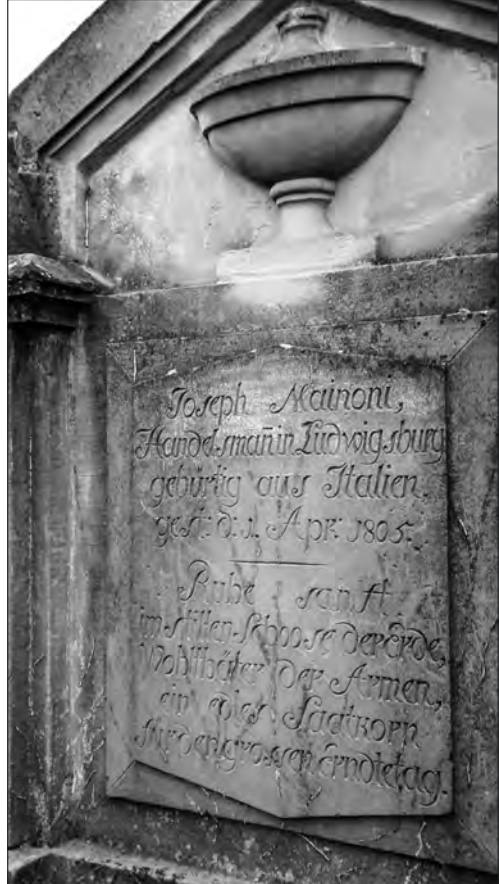 Joseph Mainoni,
Handelsmañ in Ludwigsburg
gebürtig aus Italien,
gest: d. 1. Apr. 1805.
Ruhe sanft
im stillen Schoose der Erde,
Wohlthäter der Armen,
ein edles Saatkorn
für den grossen Erndtetag.